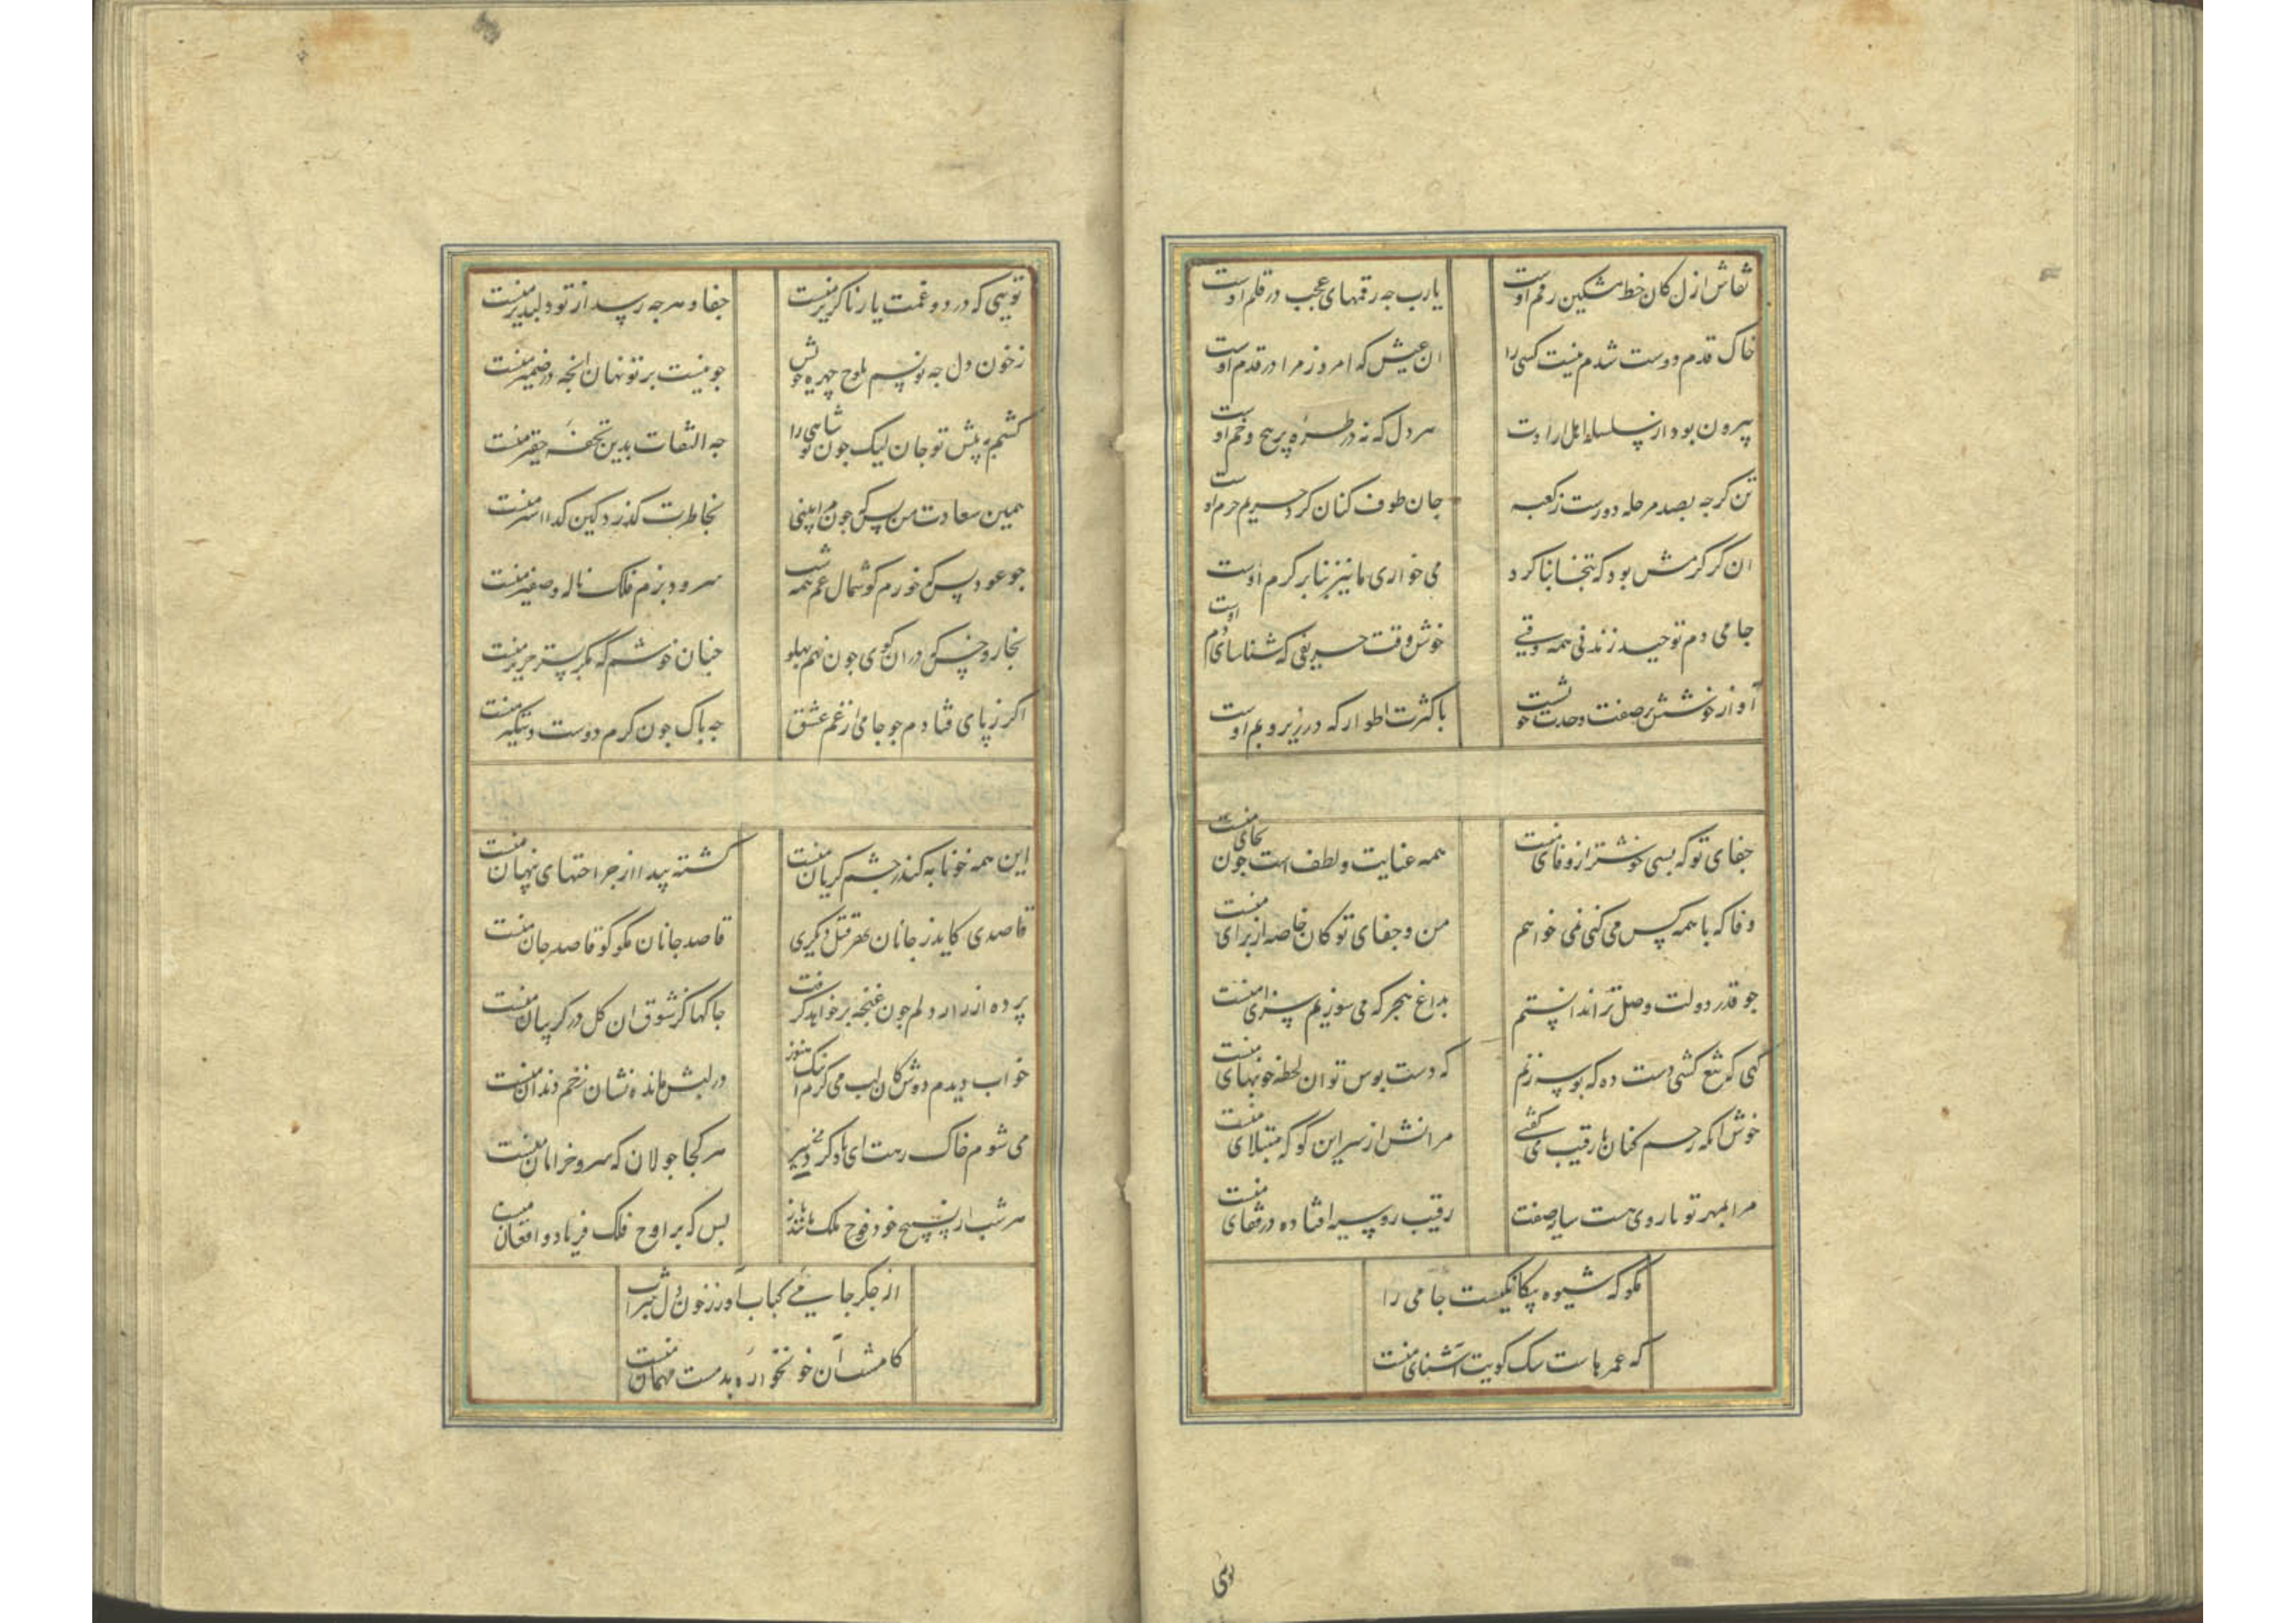 نقاش ازل کان خط مشکین رقم اوست
یارب جه رقمهای عجب در قلم اوست
خاک قدم دوست شدم نیست کسی را
ان عیش که امروز مرا در قدم اوست
بیرون بود از سلسله اهل ارادت
هر دل که نه در طره پر پیچ و خم اوست
تن کرجه بصد مرحله دورست ز کعبه
جان طوف کنان کرد حریم حرم اوست
ان کر کرمش بود که بتخانه بنا کرد
می خواری ما نیز بنا بر کرم اوست
جامی دم توحید زند نی همه وقتی
خوش وقت حریفی که شناسای دم اوست
آواز خوشش بر صفت وحدت خویشست
با کثرت اطوار که در زیر و بم اوست
جفای تو که بسی خوشتر از وفای منست
همه عنایت و لطف است جون بجای منست
وفا که با همه کس می کنی نمی خواهم
من و جفای تو کان خاصه از برای منست
جو قدر دولت وصل ترا ندانستم
بداغ هجر که می سوزیم سزای منست
کهی که تیغ کشی دست ده که بوسه زنم
که دست بوس تو ان لحظه خونبهای منست
خوش انکه رحم کنان با رقیب می کفتی
مرانش از سر این کو که مبتلای منست
مرا بمهر تو تا روی هست سایه صفت
رقیب رو سیه افتاده در قفای منست
مکو که شیوه بیکانکیست جامی را
که عمرهاست سک کویت آشنای منست
تویی
تویی که درد و غمت یار ناکزیر منست
جفا و هر جه رسد از تو دلپذیر منست
ز خون دل جه نویسم بلوح چهره خویش
جو نیست بر تو نهان انچه در ضمیر منست
کشم به پیش تو جان لیک جون تو شاهی را
جه التفات بدین تحفه حقیر منست
همین سعادت من بس که جون مرا بینی
بخاطرت کذرد کین کدا اسیر منست
جو عود بس که خورم کوشمال غم همه شب
سرود بزم فلک ناله و صفیر منست
بخار و خس که در ان کوی جون نهم پهلو
جنان خوشم که مکر بستر حریر منست
اکر ز پای فتادم جو جامی از غم عشق
جه باک جون کرم دوست دستکیر منست
این همه خونابه کندر جشم کریان منست
کشته پیدا از جراحتهای پنهان منست
قاصدی کاید ز جانان بهر قتل دیکری
قاصد جانان مکو کو قاصد جان منست
پرده از راز دلم جون غنجه برخواهد کرفت
جاکها کز شوق ان کل در کریبان منست
خواب دیدم دوش کان لب می کزم اینک هنوز
در لبش مانده نشان زخم دندان منست
می شوم خاک رهت ای باد کردم بر
هر کجا جولان که سرو خرامان منست
هر شب از تسبیح خود فوج ملک مانند باز
بس که بر اوج فلک فریاد و افغان منست
از جکر جامی کباب آور ز خون دل شراب
کامشب آن خونخواره بدمست مهمان منست